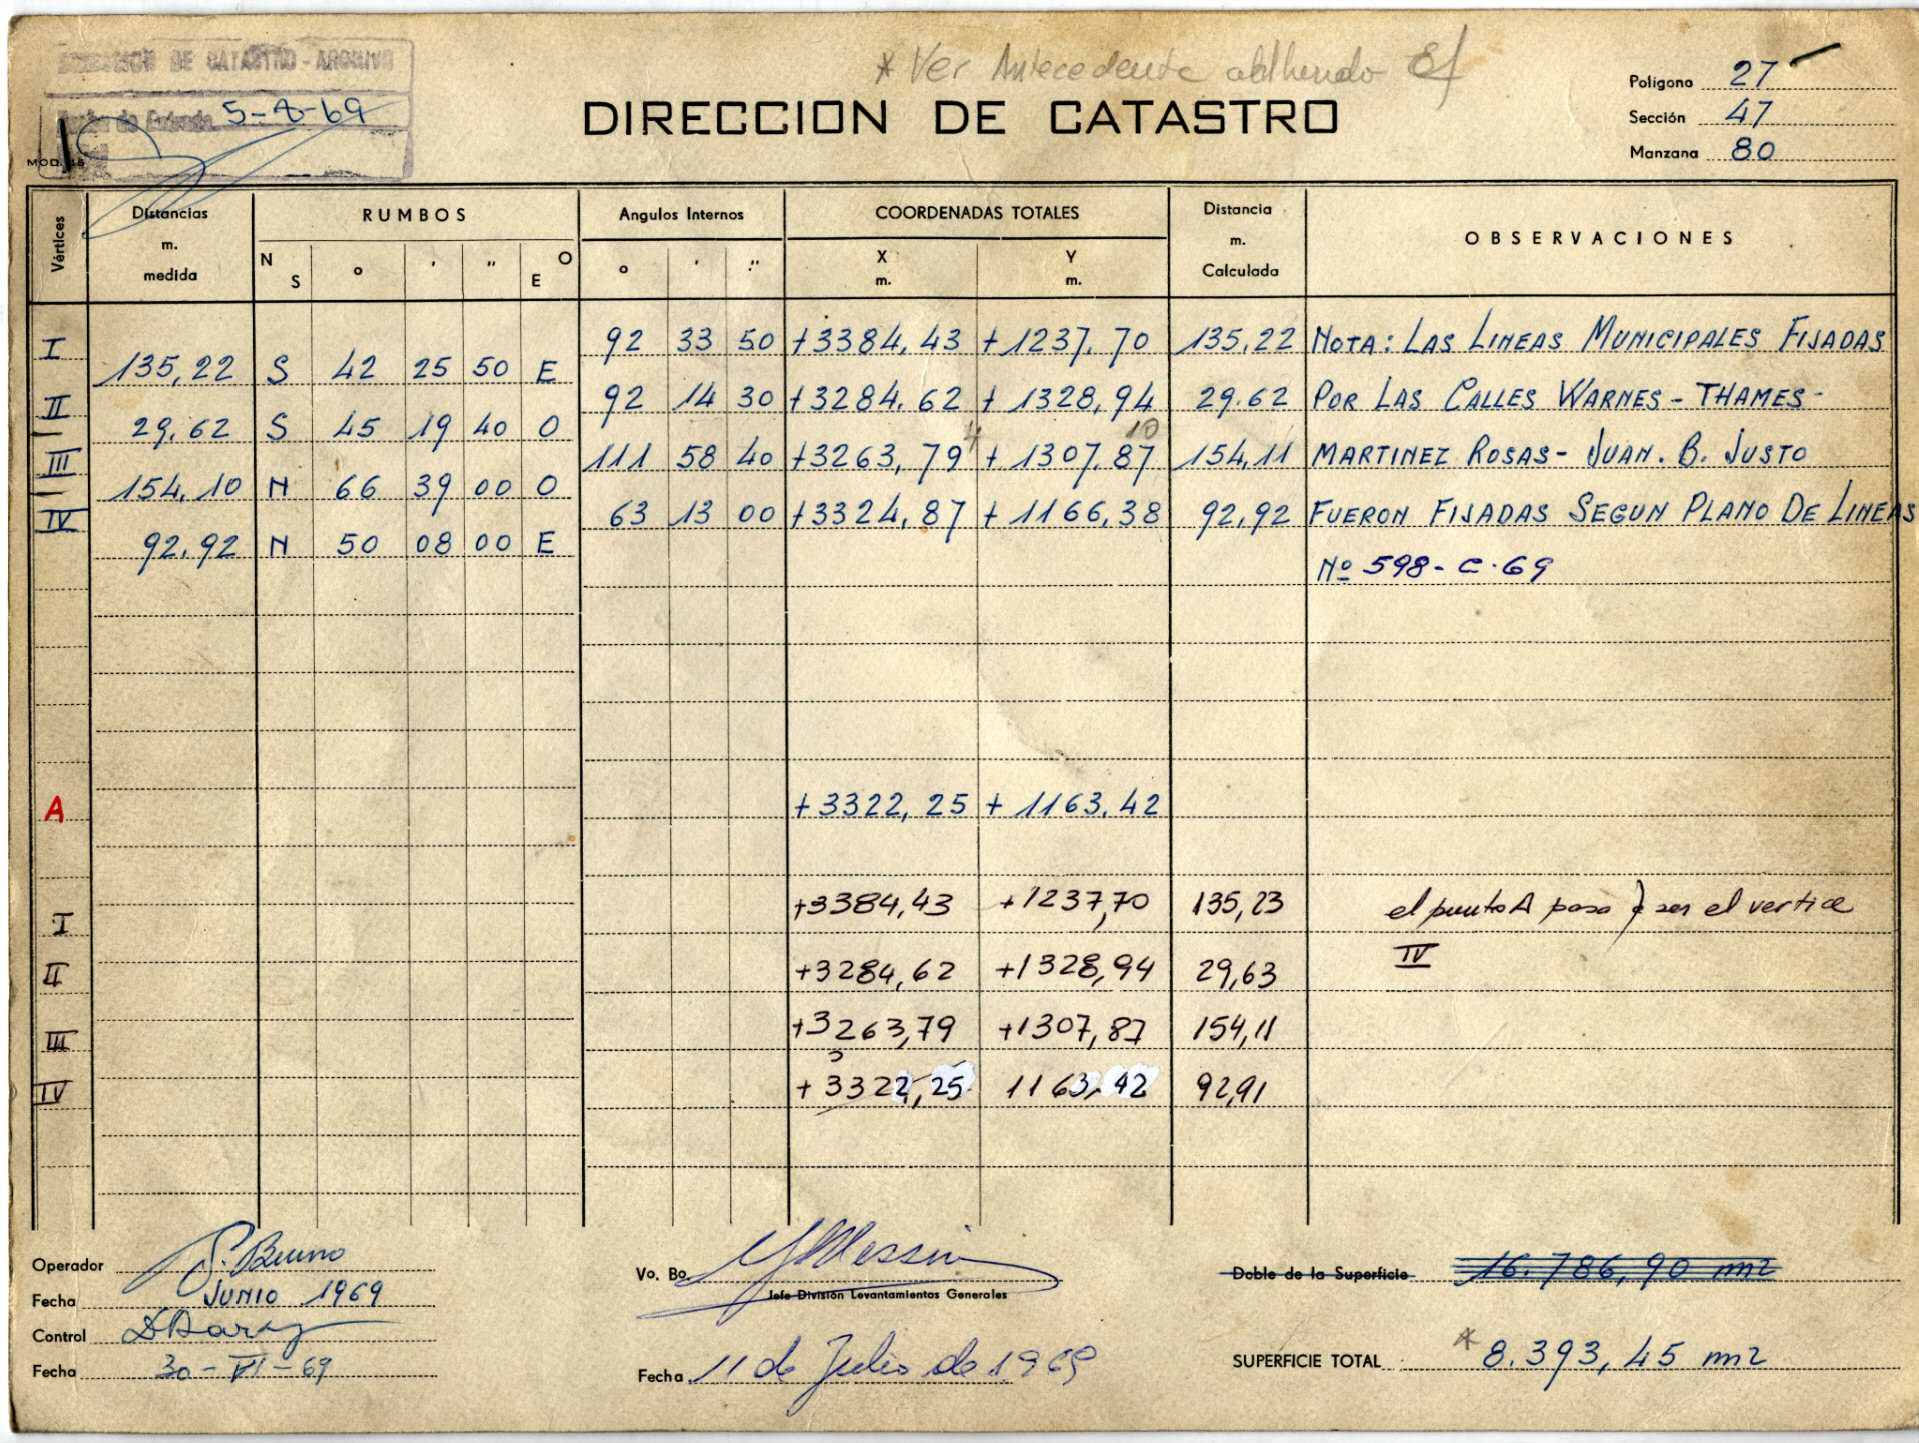 DIRECCION DE CATASTRO - ARCHIVO
Fecha de Entrada 5-8-69
* Ver Antecedente
DIRECCION DE CATASTRO
MOD. 15
Polígono 27
Sección 47
Manzana 80
Vértices Distancias m. medida RUMBOS N S ° ' " O E Angulos Internos ° ' " COORDENADAS TOTALES X m. Y m. Distancia m. Calculada OBSERVACIONES
I 92 33 50 +3384,43 +1237,70 135,22 NOTA: LAS LINEAS MUNICIPALES FIJADAS
135,22 S 42 25 50 E
II 92 14 30 +3284,62 +1328,94 29.62 POR LAS CALLES WARNES - THAMES -
29,62 S 45 19 40 O
III 111 58 40 +3263,79 +1307,87 154,11 MARTINEZ ROSAS - JUAN. B. JUSTO
154,10 N 66 39 00 O
IV 63 13 00 +3324,87 +1166,38 92,92 FUERON FIJADAS SEGUN PLANO DE LINEAS
92,92 N 50 08 00 E
Nº 598-C-69
A +3322,25 +1163,42
I +3384,43 +1237,70 135,23 el punto A pasa a ser el vertice
II +3284,62 +1328,94 29,63 IV
III +3263,79 +1307,87 154,11
IV +3322,25 1163,42 92,91
Operador S. Bruno
Fecha JUNIO 1969
Control
Fecha 30-VI-69
Vo. Bo.
Jefe División Levantamientos Generales
Fecha 11 de Julio de 1969
Doble de la Superficie 16.786,90 m2
SUPERFICIE TOTAL * 8.393,45 m2